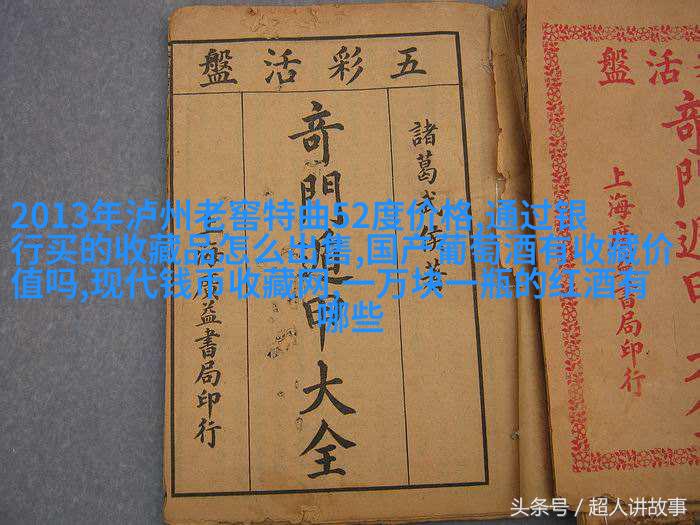 五彩活盤
諸葛武侯著
奇門遁甲大全
上海廣益書局印行
2013年泸州老窖特曲52度价格,通过银
行买的收藏品怎么出售,国产葡萄酒有收藏价
值吗,现代钱币收藏网,一万块一瓶的红酒有
哪些
活盤
奇門遁甲
上海廣益書局印行
头条号 / 超人讲故事